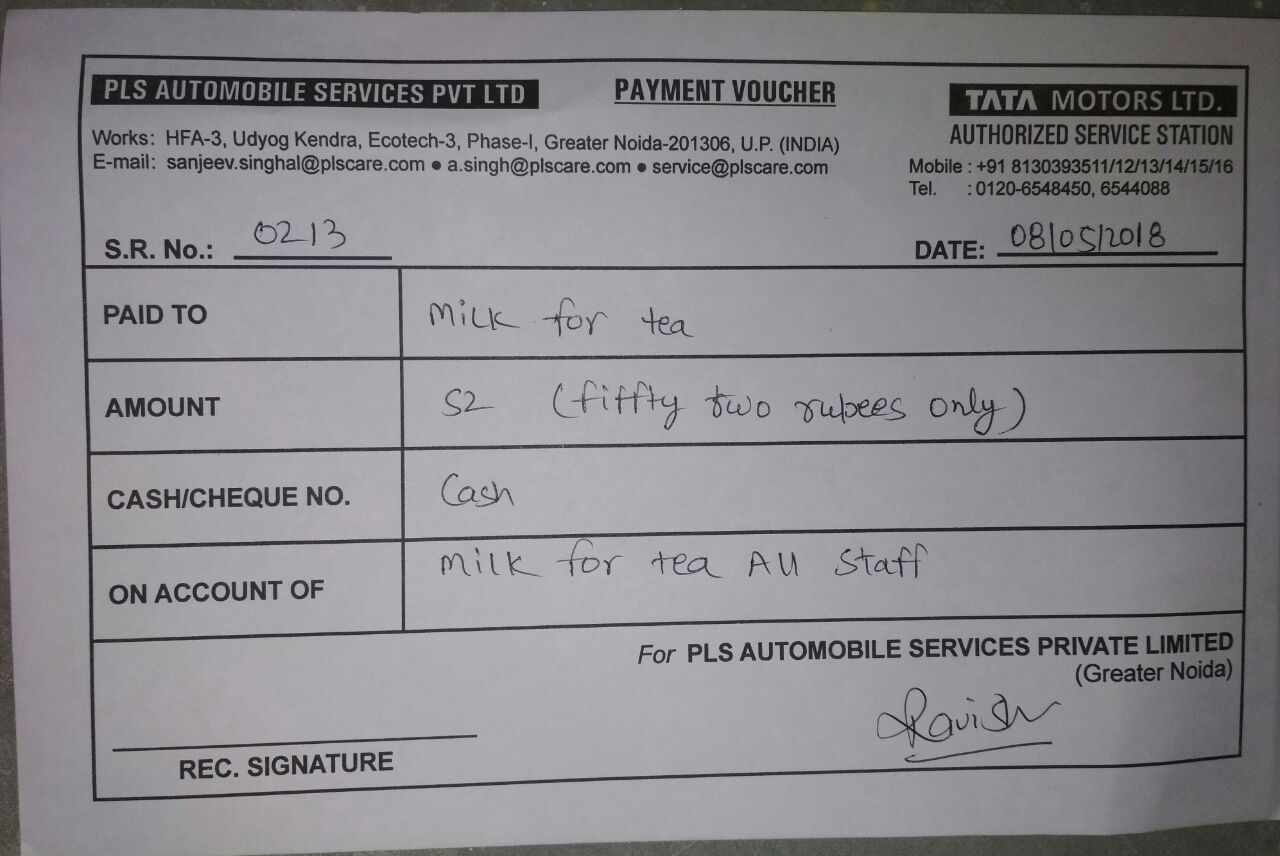 PLS AUTOMOBILE SERVICES PVT LTD
PAYMENT VOUCHER
TATA MOTORS LTD.
AUTHORIZED SERVICE STATION
Works: HFA-3, Udyog Kendra, Ecotech-3, Phase-I, Greater Noida-201306, U.P. (INDIA)
E-mail: sanjeev.singhal@plscare.com ● a.singh@plscare.com ● service@plscare.com
Mobile : +91 8130393511/12/13/14/15/16
Tel. : 0120-6548450, 6544088
S.R. No.: 0213
DATE: 08/05/2018
PAID TO Milk for tea
AMOUNT 52 (fiffty two rupees only)
CASH/CHEQUE NO. Cash
ON ACCOUNT OF Milk for tea All Staff
For PLS AUTOMOBILE SERVICES PRIVATE LIMITED
(Greater Noida)
Ravish
REC. SIGNATURE